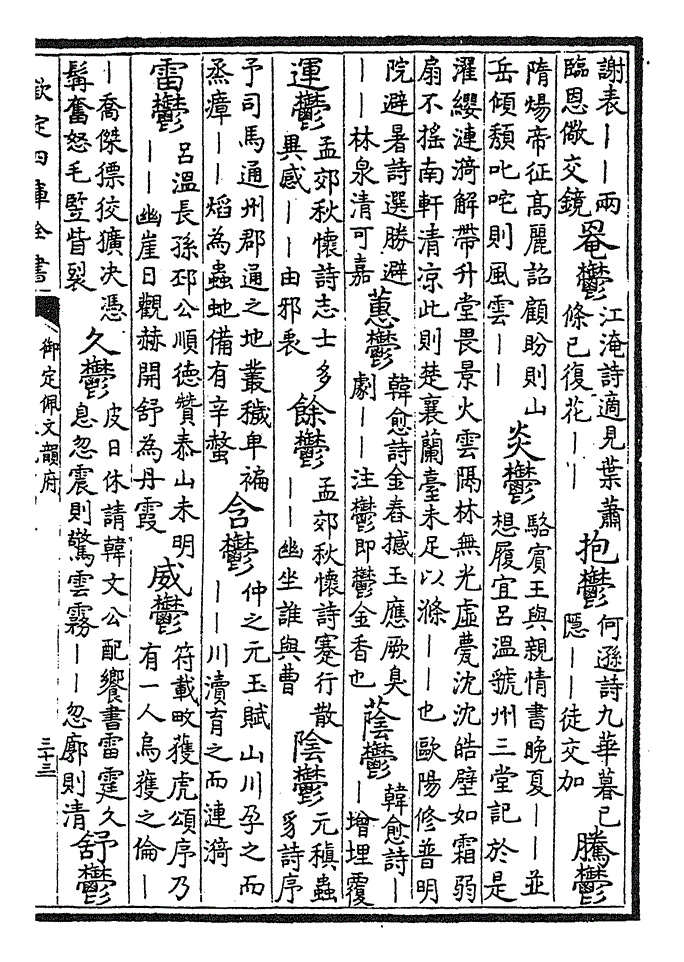 謝表——兩
臨恩儆交鏡
罨鬱
江淹詩適見葉蕭
條已復花——
抱鬱
何遜詩九華暮已
隱——徒交加
騰鬱
隋煬帝征高麗詔顧盼則山
岳傾頽叱咤則風雲——
炎鬱
駱賓王與親情書晚夏——並
想履宜呂溫虢州三堂記於是
濯纓漣漪解帶升堂畏景火雲隔林無光虛甍沈沈皓壁如霜弱
扇不搖南軒清凉此則楚襄蘭臺未足以滌——也歐陽修普明
院避暑詩選勝避
——林泉清可嘉
蕙鬱
韓愈詩金舂撼玉應厥臭
劇——注鬱即鬱金香也
蔭鬱
韓愈詩—
—增埋覆
運鬱
孟郊秋懷詩志士多
異感——由邪衺
餘鬱
孟郊秋懷詩蹇行散
——幽坐誰與曹
陰鬱
元稹蟲
豸詩序
予司馬通州郡通之地叢穢卑褊
烝瘴——熖為蟲虵備有辛螫
含鬱
仲之元玉賦山川孕之而
——川瀆育之而漣漪
雷鬱
呂溫長孫邳公順德贊泰山未明
——幽崖日觀赫開舒為丹霞
威鬱
符載畋獲虎頌序乃
有一人烏獲之倫—
—喬傑㺀狡獷决憑
髯奮怒毛竪眥裂
久鬱
皮日休請韓文公配饗書雷霆久
息忽震則驚雲霧——忽廓則清
舒鬱
欽定四庫全書
御定佩文韻府
三十三